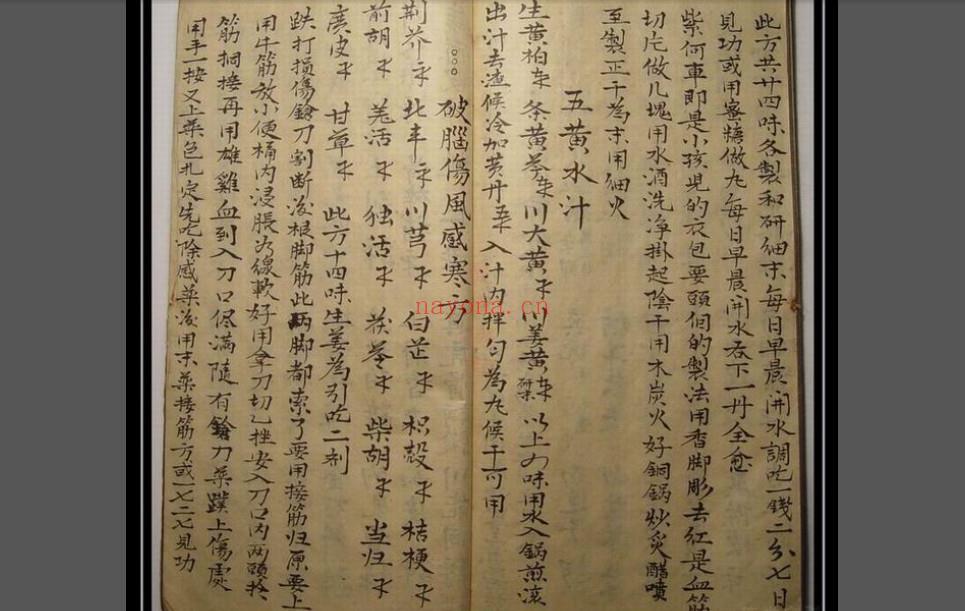 此方共廿四味各製和研細末每日早晨開水調吃一錢二分七日
見功或用蜜糖做丸每日早晨開水吞下一丹全愈
紫何車即是小孩児的衣包要頭個的製法用香脚彫去紅是血筋
切片做几塊用水酒洗净掛起陰干用木炭火好銅锅炒炙醋噴
至製正干為末用細火
五黄水汁
生黄柏 条黄芩 川大黄 川姜黄 以上四味用水入锅煎滚
出汁去渣候冷加黄丹 入汁内拌匀為丸候干可用
破腦傷風感寒方
荆芥 北丰 川芎 白芷 枳殻 桔梗
前胡 羌活 独活 茯苓 柴胡 当归
廣皮 甘草 此方十四味生姜為引吃二剂
跌打損傷鎗刀割断後根脚筋此両脚都索了要用接筋归原要上
用牛筋放小便桶内浸脹為線軟好用拿刀切乙挫安入刀口内両頭
筋 接再用雄雞血到入刀口伱满隨有鎗刀薬 上傷處
用手一按又上薬色扎定先吃除感薬後用末薬接筋方或一七二七見功
nayona.cn